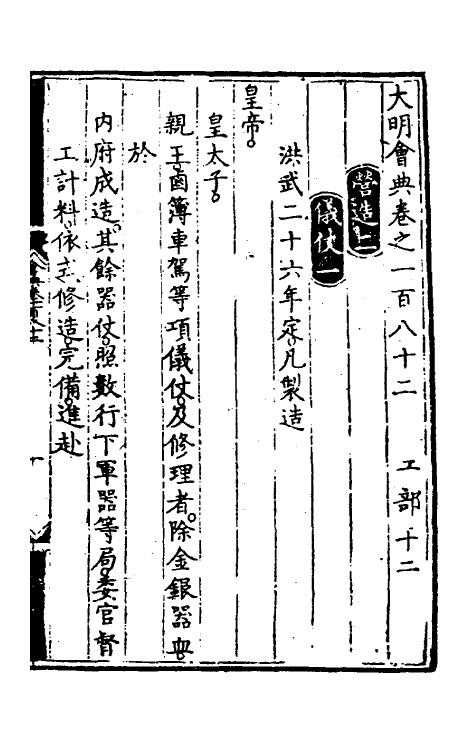 大明會典卷之一百八十二　工部十二
營造二
儀仗一
洪武二十六年定。凡製造
皇帝。
皇太子。
親王鹵簿車駕等項儀仗。及修理者。除金銀器皿。
於
內府成造。其餘器仗。照數行下軍器等局。委官督
工計料。依式修造。完備進赴